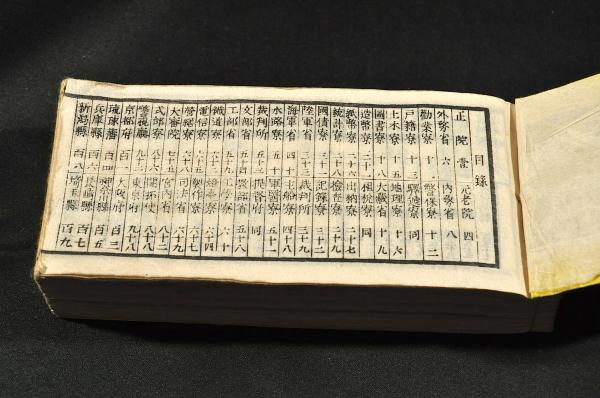 目録
正院 壹 元老院 四
外務省 六 内務省 八
勸業寮 十 警保寮 十二
戸籍寮 十三 驛遞寮 同
土木寮 十五 地理寮 十六
圖書寮 十八 大藏省 十九
造幣寮 二十一 租税寮 同
紙幣寮 二十六 出納寮 二十七
統計寮 二十八 檢査寮 二十九
國債寮 三十一 記録寮 三十二
陸軍省 三十三 裁判所 三十九
海軍省 四十 主船寮 四十八
水路寮 五十 軍醫寮 五十一
裁判所 五十三 提督府 同
文部省 五十四 教部省 五十八
工部省 五十九 工學寮 六十
鐵道寮 六十二 燈臺寮 六十四
電信寮 六十五 製作寮 六十七
營繕寮 司法省 六十九
大審院 宮内省
式部寮 八十六 開拓使 八十七
警視廳 九十三 東京府 九十八
京都府 百一 大阪府 百三
琉球藩 百四 神奈川縣 百五
兵庫縣 百六 長崎縣 百七
新潟縣 百八 埼玉縣 百九